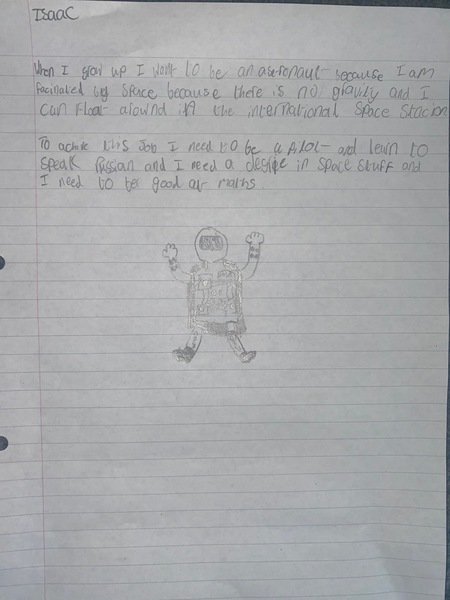 Isaac
When I grow up I want to be an astronaut because I am
facinated by space because there is no gravity and I
can float around in the international Space Station
To achive this Job I need to be a pilot and learn to
Speak Russian and I need a degree in Space Stuff and
I need to be good at maths